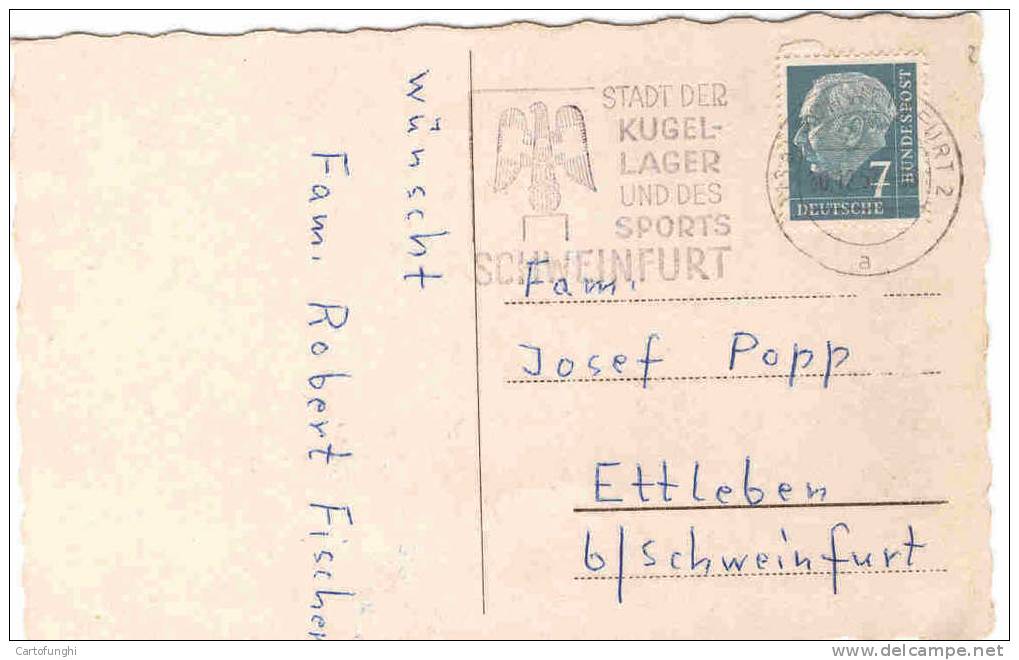 wünscht
Fam. Robert Fischer
STADT DER
KUGEL-
LAGER
UND DES
SPORTS
SCHWEINFURT
FURT 2
a
7
BUNDESPOST
DEUTSCHE
Fam.
Josef Popp
Ettleben
b/Schweinfurt
Cartofunghi
www.delcampe.net